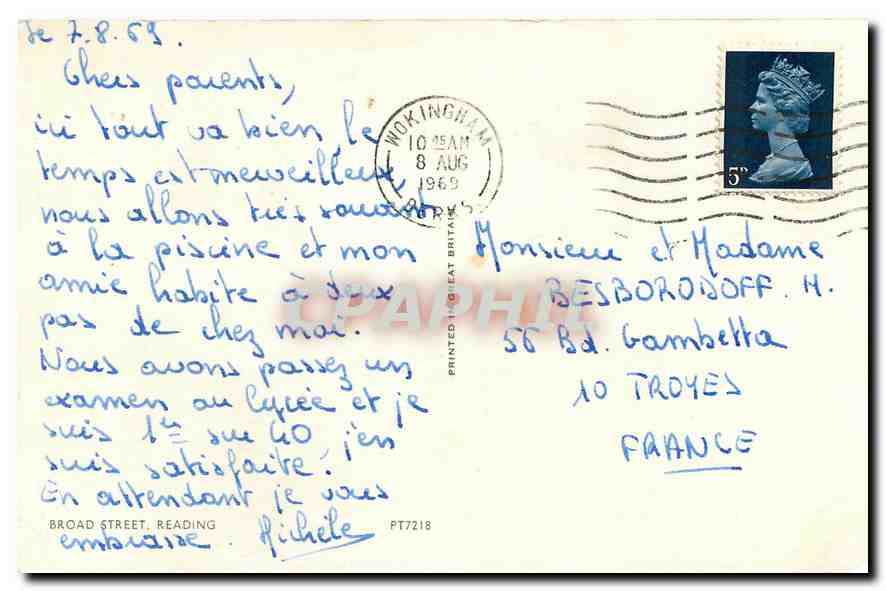 le 7.8.69.
Chers parents,
ici tout va bien, le
temps est merveilleux,
nous allons très souvent
à la piscine et mon
amie habite à deux
pas de chez moi.
Nous avons passez un
examen au lycée et je
suis 1ère sur 40, j'en
suis satisfaite.
En attendant je vous
embrasse. Michèle
BROAD STREET, READING
PT7218
PRINTED IN GREAT BRITAIN
WOKINGHAM
10 45 AM
8 AUG
1969
BERKS
5D
Monsieur et Madame
BESBORODOFF. M.
56 Bd. Gambetta
10 TROYES
FRANCE
CPAPHIL